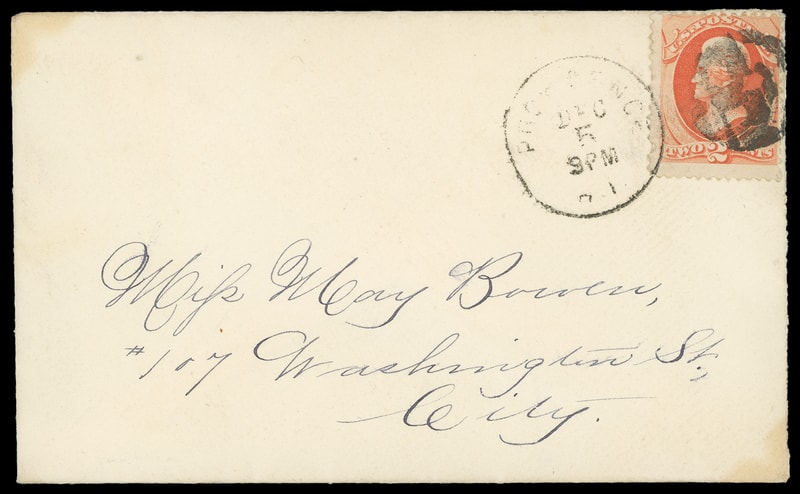 U.S. POSTAGE
TWO 2 CENTS
PROVIDENCE
DEC
5
9PM
R.I.
Miſs May Bowen,
#107 Washington St.,
City.